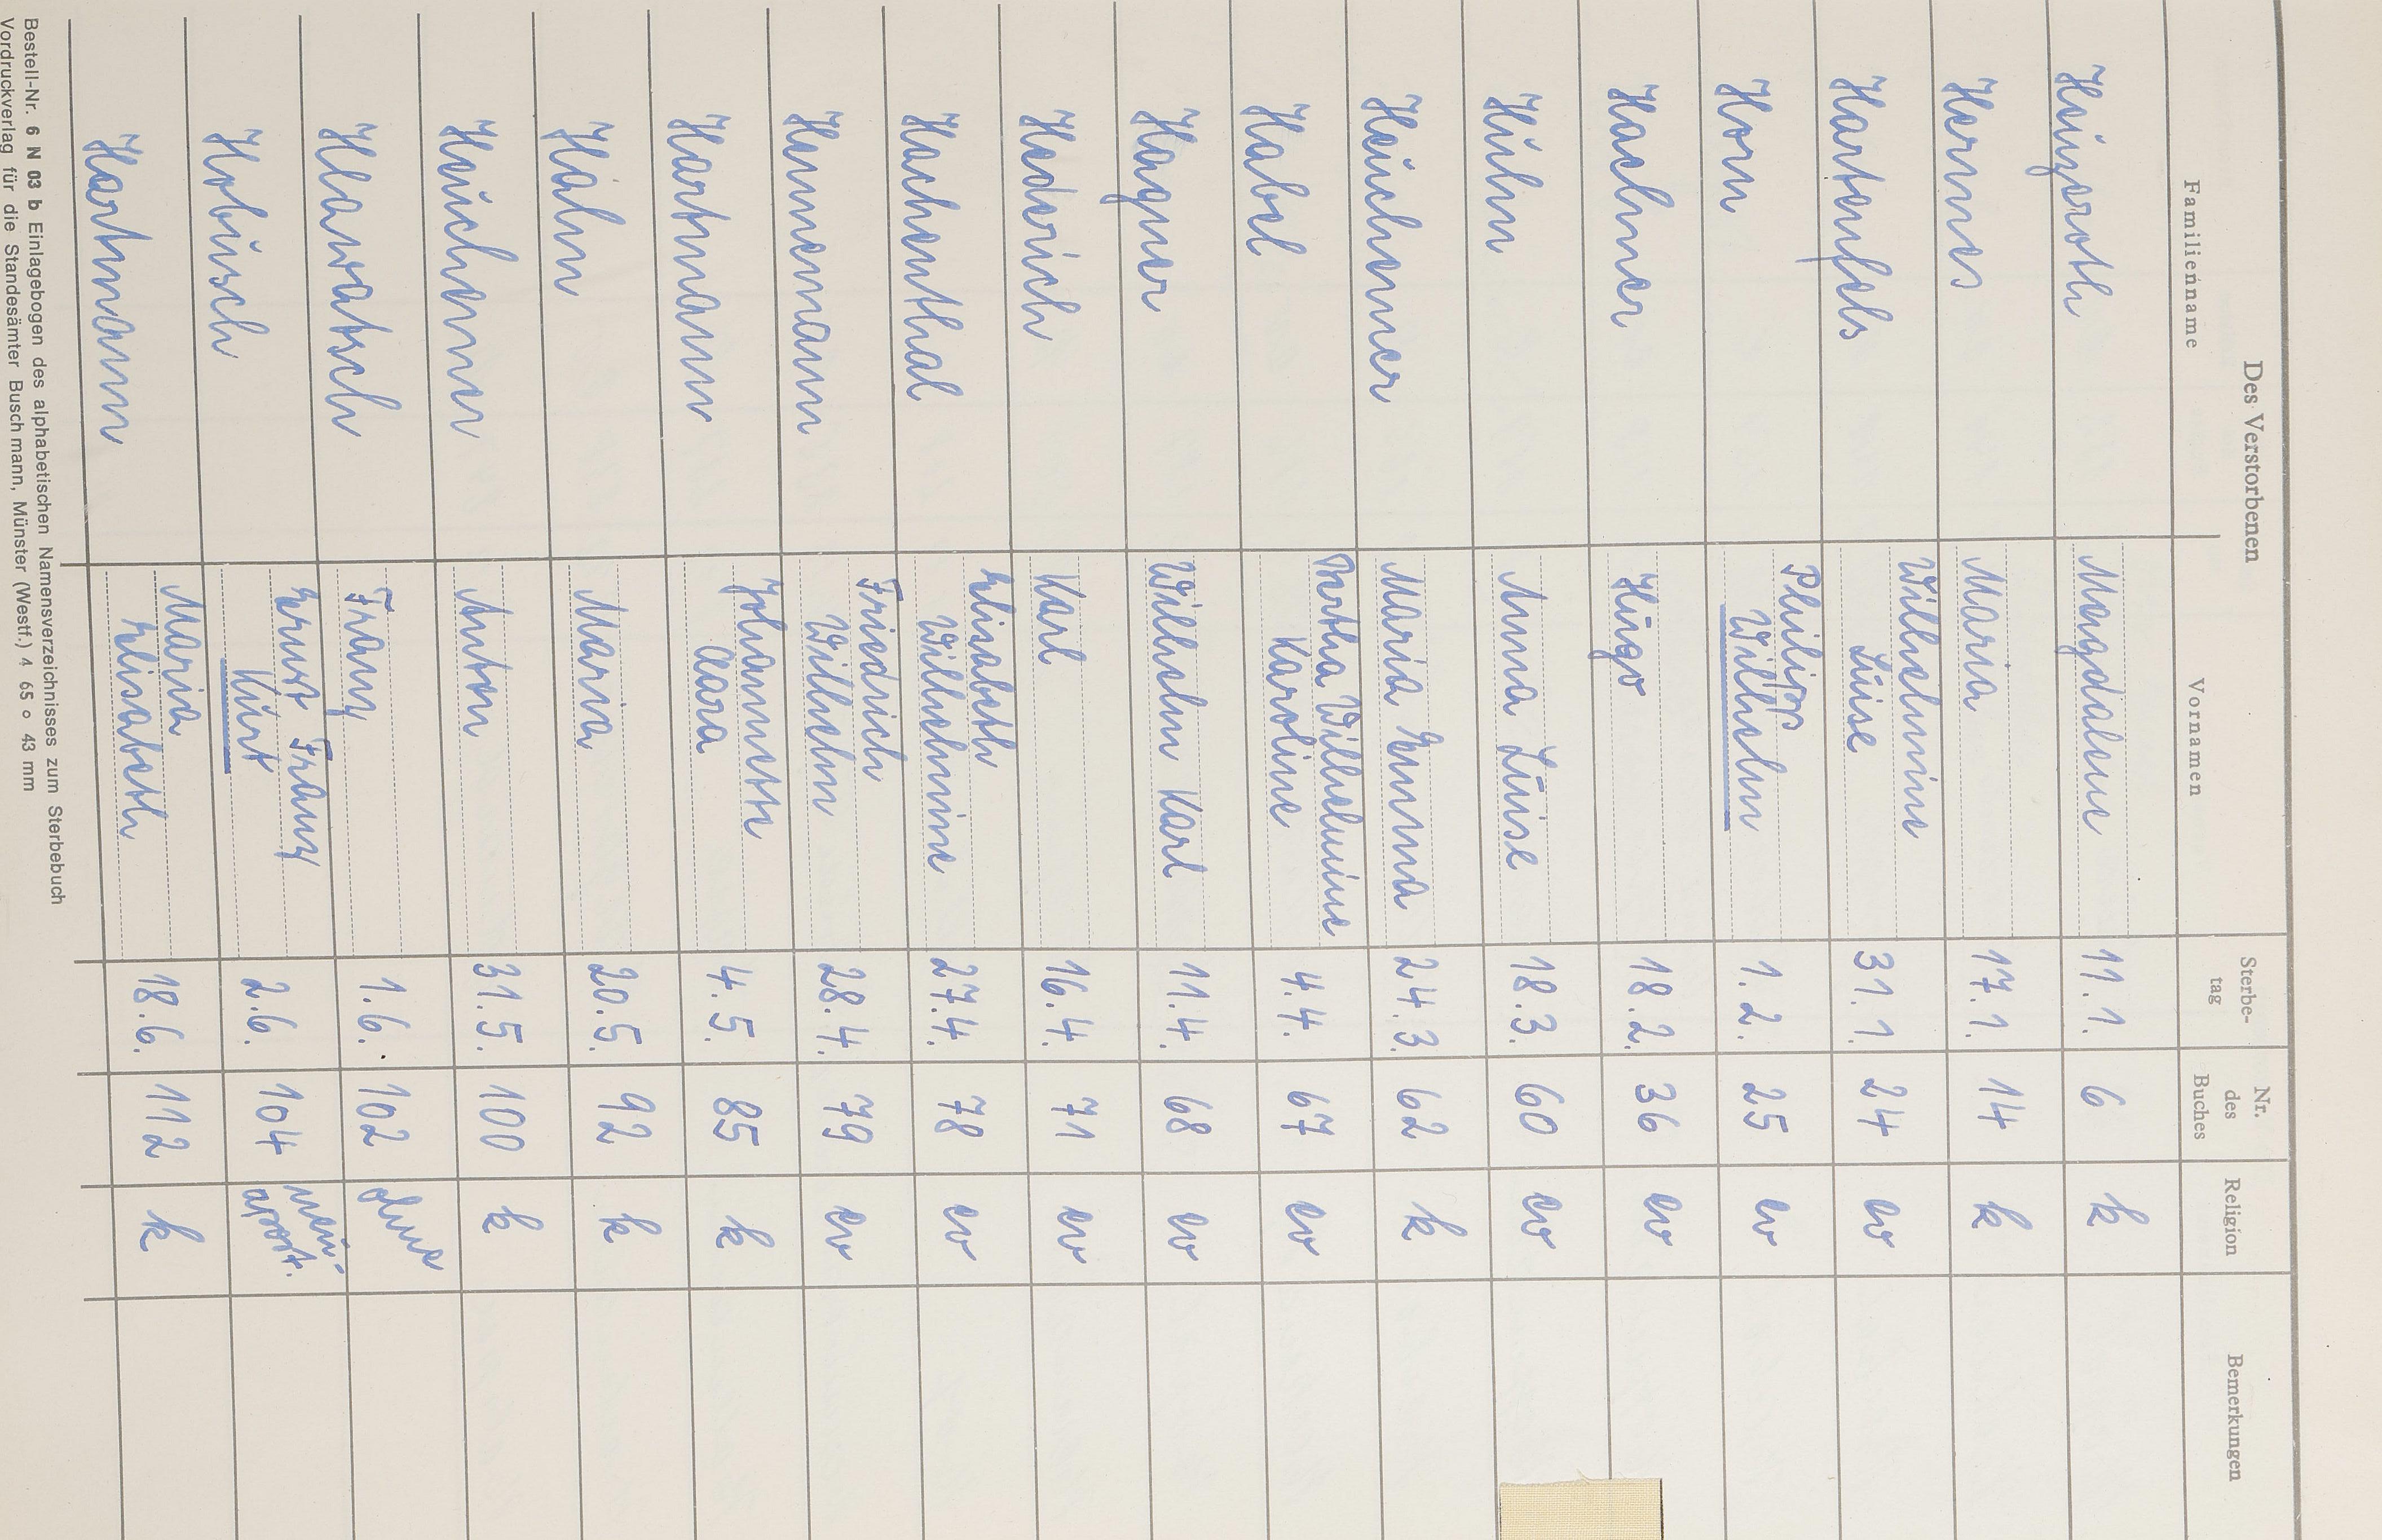 Des Verstorbenen
Familienname Vornamen Sterbe-tag Nr. des Buches Religion Bemerkungen
Heinzeroth Magdalene 11.1. 6 k
Hermes Maria 17.1. 14 k
Hartenfels Wilhelmine Luise 31.1. 24 ev
Horn Philipp Wilhelm 1.2. 25 ev
Hachner Hugo 18.2. 36 ev
Hühn Anna Luise 18.3. 60 ev
Heuchemer Maria Emma 24.3. 62 k
Habel Martha Wilhelmine Karoline 4.4. 67 ev
Hagner Wilhelm Karl 11.4. 68 ev
Hederich Karl 16.4. 71 ev
Hachenthal Elisabeth Wilhelmine 27.4. 78 ev
Hennemann Friedrich Wilhelm 28.4. 79 ev
Hartmann Johannette Clara 4.5. 85 k
Hahn Maria 20.5. 92 k
Heuchemer Anton 31.5. 100 k
Hlawatsch Franz 1.6. 102 ohne
Hobusch Ernst Franz Kurt 2.6. 104 neu-apost.
Hartmann Maria Elisabeth 18.6. 112 k
Bestell-Nr. 6 N 03 b Einlagebogen des alphabetischen Namensverzeichnisses zum Sterbebuch
Vordruckverlag für die Standesämter Buschmann, Münster (Westf.) 4 65 o 43 mm